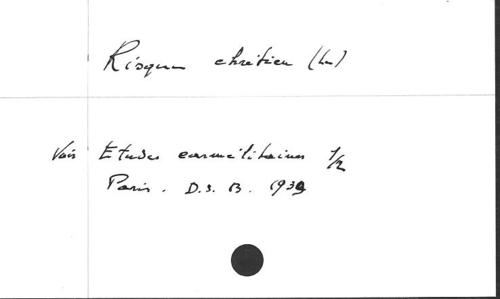 Risque chrétien (Le)
Voir Etudes carmélitaines 1/2
Paris. D.d.B. 1939